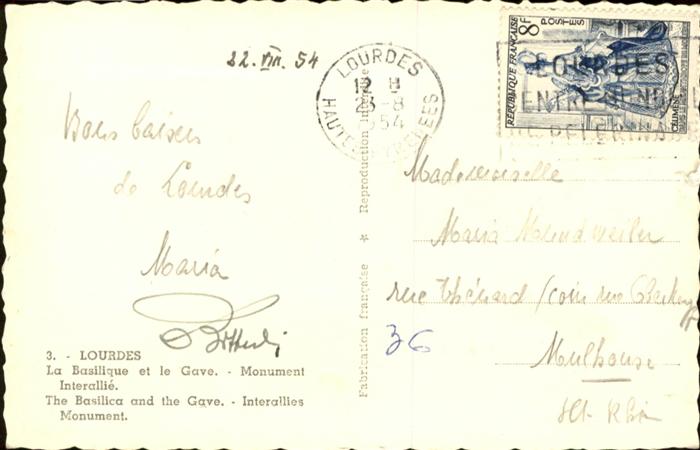 22. VIII. 54
Bons baisers
de Lourdes
Maria
3. - LOURDES
La Basilique et le Gave. - Monument
Interallié.
The Basilica and the Gave. - Interallies
Monument.
Fabrication française * Reproduction interdite
LOURDES
12 H
23-8
54
HAUTES PYRENEES
RÉPUBLIQUE FRANÇAISE
8F
POSTES
LOURDES
CENTRE MONDIAL
DE PELERINAGE
Mademoiselle
Maria
rue Thénard / coin rue
Mulhouse
Ht Rhin
36